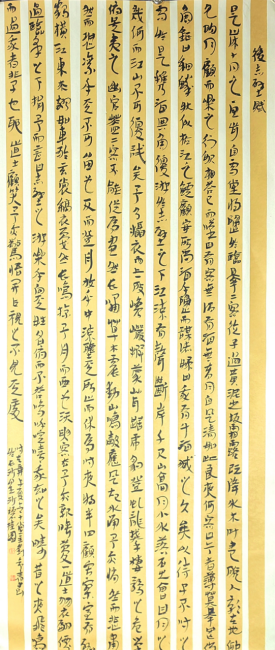 後赤壁賦
是歲十月之望步自雪堂將歸於臨皋二客從予過黃泥之坂霜露既降木葉盡脫人影在地仰
見明月顧而樂之行歌相答已而歎曰有客無酒有酒無肴月白風清如此良夜何客曰今者薄暮舉網得
魚巨口細鱗狀似松江之鱸顧安所得酒乎歸而謀諸婦婦曰我有斗酒藏之久矣以待子不時之
需於是攜酒與魚復遊於赤壁之下江流有聲斷岸千尺山高月小水落石出曾日月之
幾何而江山不可復識矣予乃攝衣而上履巉巖披蒙茸踞虎豹登虯龍攀棲鶻之危巢
俯馮夷之幽宮蓋二客不能從焉劃然長嘯草木震動山鳴谷應風起水涌予亦悄然而悲肅
然而恐凜乎其不可留也反而登舟放乎中流聽其所止而休焉時夜將半四顧寂寥適有孤
鶴橫江東來翅如車輪玄裳縞衣戛然長鳴掠予舟而西也須臾客去予亦就睡夢一道士羽衣翩僊
過臨皋之下揖予而言曰赤壁之遊樂乎問其姓名俛而不答嗚呼噫嘻我知之矣疇昔之夜飛鳴
而過我者非子也耶道士顧笑予亦驚悟開戶視之不見其處